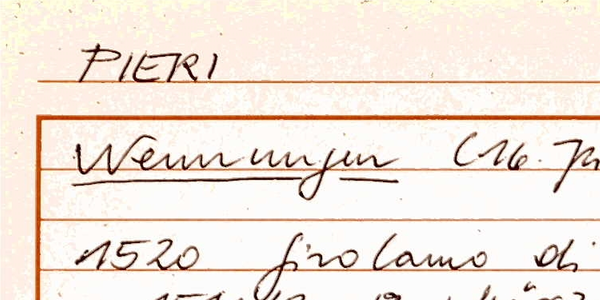 PIERI
Wennungen (16. Jh
1520 Girolamo di